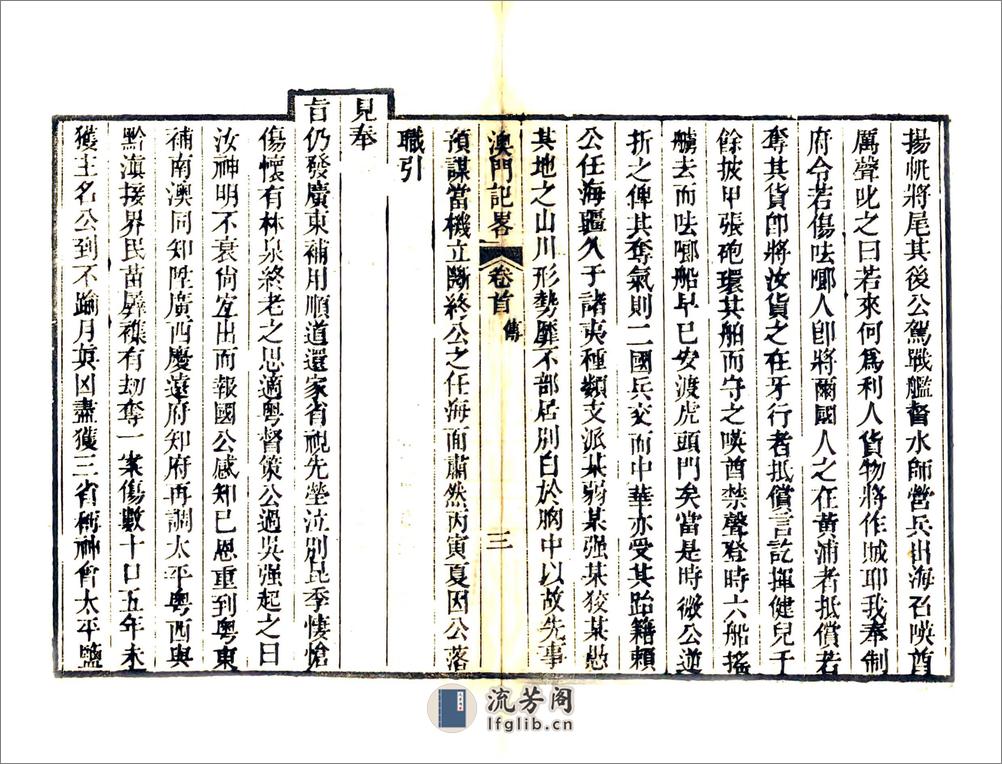 揚帆將尾其後公駕戰艦督水師營兵出海召㗲酋
厲聲叱之曰若來何爲利人貨物將作賊耶我奉制
府令若傷呿㘄人卽將爾國人之在黃浦者抵償若
奪其貨卽將汝貨之在牙行者抵償言訖揮健兒千
餘披甲張砲環其舶而守之㗲酋禁聲登時六船搖
艣去而呿㘄船早已安渡虎頭門矣當是時微公逆
折之俾其奪氣則二國兵交而中華亦受其跆籍賴
公任海疆久于諸夷種類支派某弱某强某狡某愚
其地之山川形勢靡不部居別白於胸中以故先事
澳門記畧
卷首
傳
三
預謀當機立斷終公之任海面肅然丙寅夏因公落
職引
見奉
旨仍發廣東補用順道還家省視先塋泣別昆季悽愴
傷懷有林泉終老之思適粵督策公過吳强起之曰
汝神明不衰尙宜出而報國公感知已恩重到粵東
補南澳同知陞廣西慶遠府知府再調太平粵西與
黔滇接界民苗雜有劫奪一案傷數十口五年未
獲主名公到不踰月眞凶盡獲三省稱神會太平鹽
流芳阁
lfglib.cn